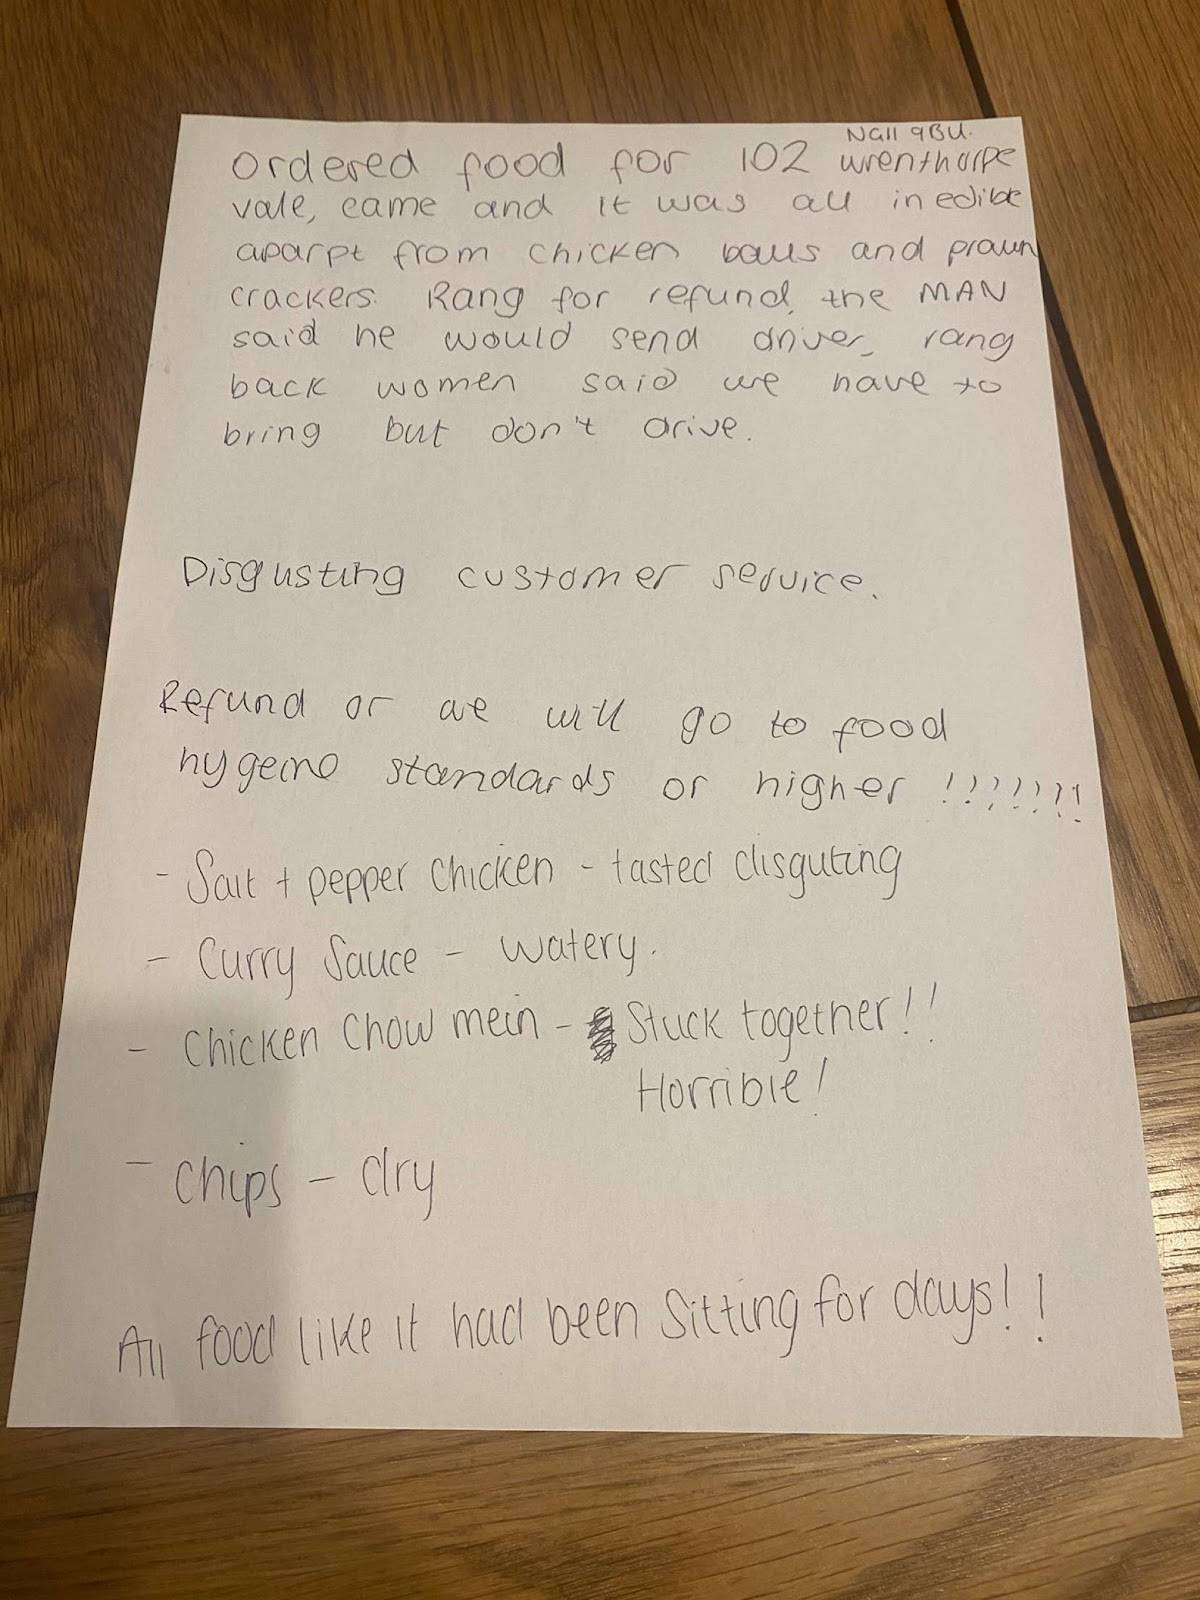 NG11 9BU.
Ordered food for 102 wrenthorpe
vale, came and it was all inedible
aparpt from chicken balls and prawn
crackers. Rang for refund, the MAN
said he would send driver, rang
back women said we have to
bring but don't drive.
Disgusting customer service.
Refund or we will go to food
hygeine standards or higher !!!!!!!
- Salt + pepper chicken - tasted disguting
- Curry Sauce - watery.
- Chicken Chow mein - Stuck together!!
Horrible!
- Chips - dry
All food like it had been sitting for days!!